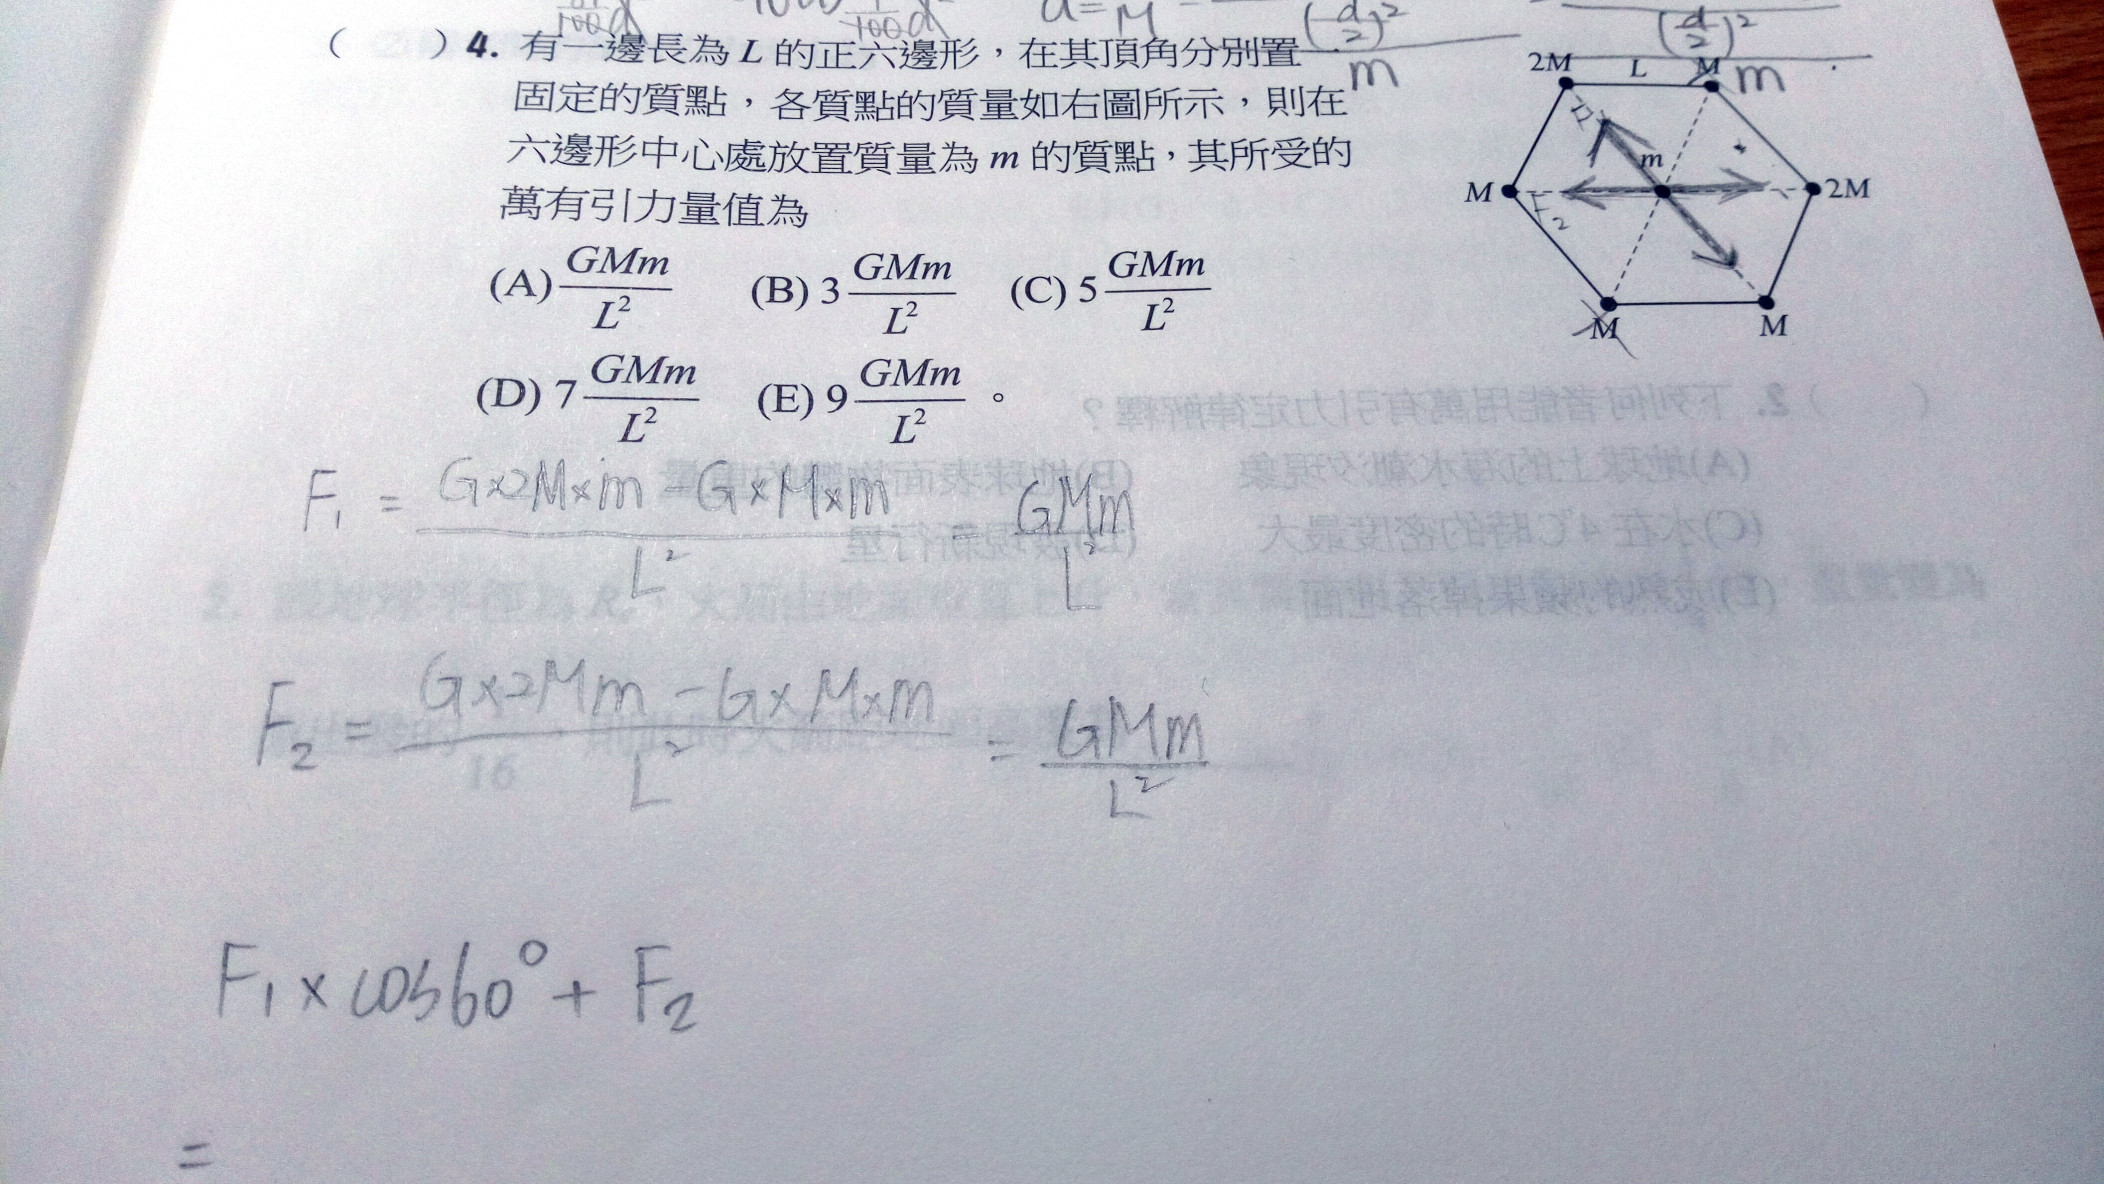 ( ) 4. 有一邊長為 L 的正六邊形，在其頂角分別置
固定的質點，各質點的質量如右圖所示，則在
六邊形中心處放置質量為 m 的質點，其所受的
萬有引力量值為
(A) GMm/L² (B) 3 GMm/L² (C) 5 GMm/L²
(D) 7 GMm/L² (E) 9 GMm/L² 。
2M L M
m
M 2M
F₂
M M
(d/2)² (d/2)²
m m
F₁ = (G×2M×m - G×M×m)/L² = GMm/L²
F₂ = (G×2Mm - G×M×m)/L² = GMm/L²
F₁ × cos60° + F₂
=